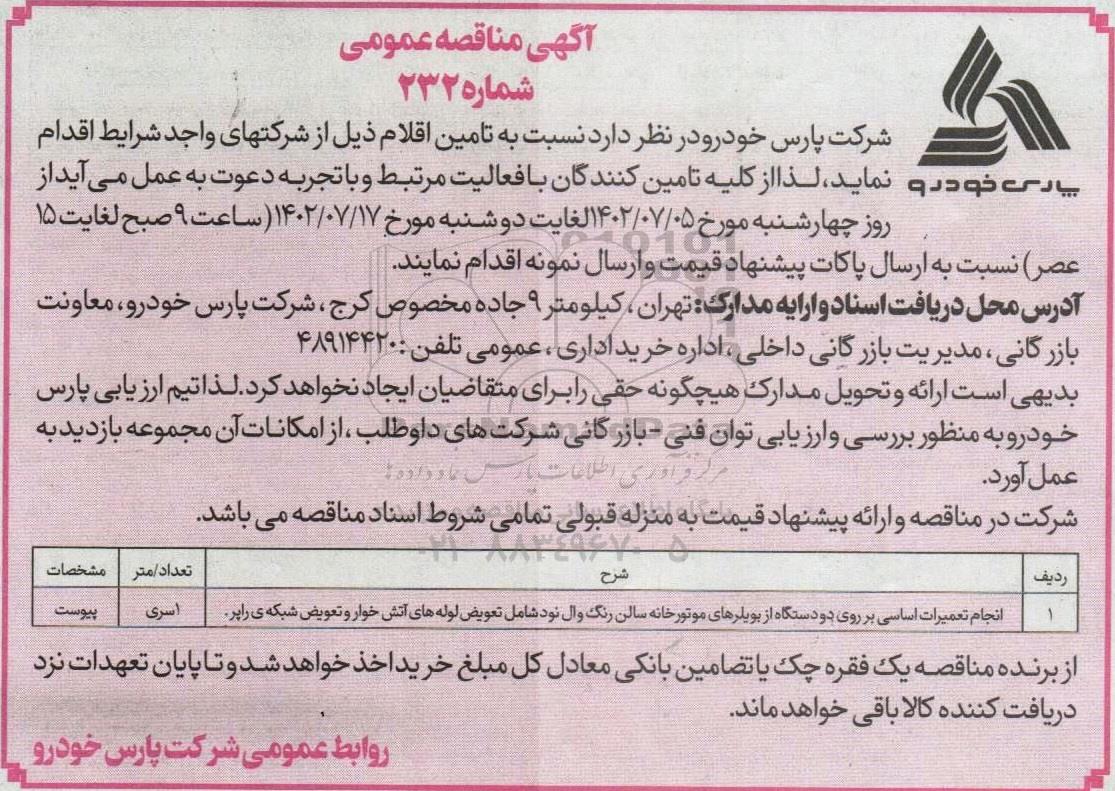 آگهی مناقصه عمومی
شماره ۲۳۲
پارس خودرو
شرکت پارس خودرو در نظر دارد نسبت به تامین اقلام ذیل از شرکتهای واجد شرایط اقدام
نماید، لذا از کلیه تامین کنندگان با فعالیت مرتبط و با تجربه دعوت به عمل می آید از
روز چهارشنبه مورخ ۱۴۰۲/۰۷/۰۵ لغایت دوشنبه مورخ ۱۴۰۲/۰۷/۱۷ (ساعت ۹ صبح لغایت ۱۵
عصر) نسبت به ارسال پاکات پیشنهاد قیمت و ارسال نمونه اقدام نمایند.
آدرس محل دریافت اسناد و ارایه مدارک: تهران، کیلومتر ۹ جاده مخصوص کرج، شرکت پارس خودرو، معاونت
بازرگانی، مدیریت بازرگانی داخلی، اداره خرید اداری، عمومی تلفن: ۴۸۹۱۴۴۲۰
بدیهی است ارائه و تحویل مدارک هیچگونه حقی را برای متقاضیان ایجاد نخواهد کرد. لذا تیم ارزیابی پارس
خودرو به منظور بررسی و ارزیابی توان فنی - بازرگانی شرکت های داوطلب، از امکانات آن مجموعه بازدید به
عمل آورد.
شرکت در مناقصه و ارائه پیشنهاد قیمت به منزله قبولی تمامی شروط اسناد مناقصه می باشد.
۰۲۱-۸۸۳۴۹۶۷۰-۵
ردیف شرح تعداد/متر مشخصات
۱ انجام تعمیرات اساسی بر روی دو دستگاه از بویلرهای موتورخانه سالن رنگ وال نود شامل تعویض لوله های آتش خوار و تعویض شبکه ی راپر. ۱سری پیوست
از برنده مناقصه یک فقره چک یا تضامین بانکی معادل کل مبلغ خرید اخذ خواهد شد و تا پایان تعهدات نزد
دریافت کننده کالا باقی خواهد ماند.
روابط عمومی شرکت پارس خودرو